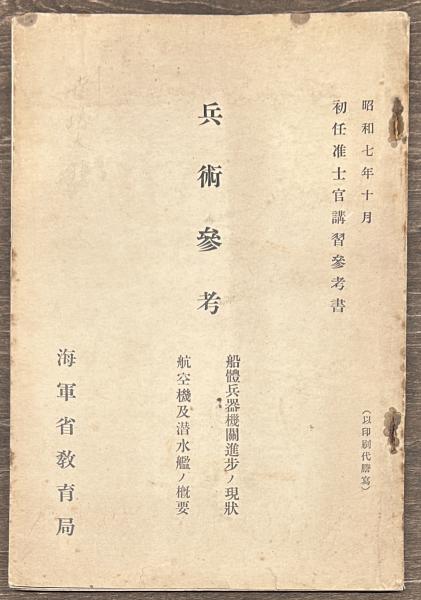 昭和七年十月
初任准士官講習參考書
(以印刷代謄寫)
兵術參考
船體兵器機關進步ノ現狀
航空機及潜水艦ノ概要
海軍省教育局